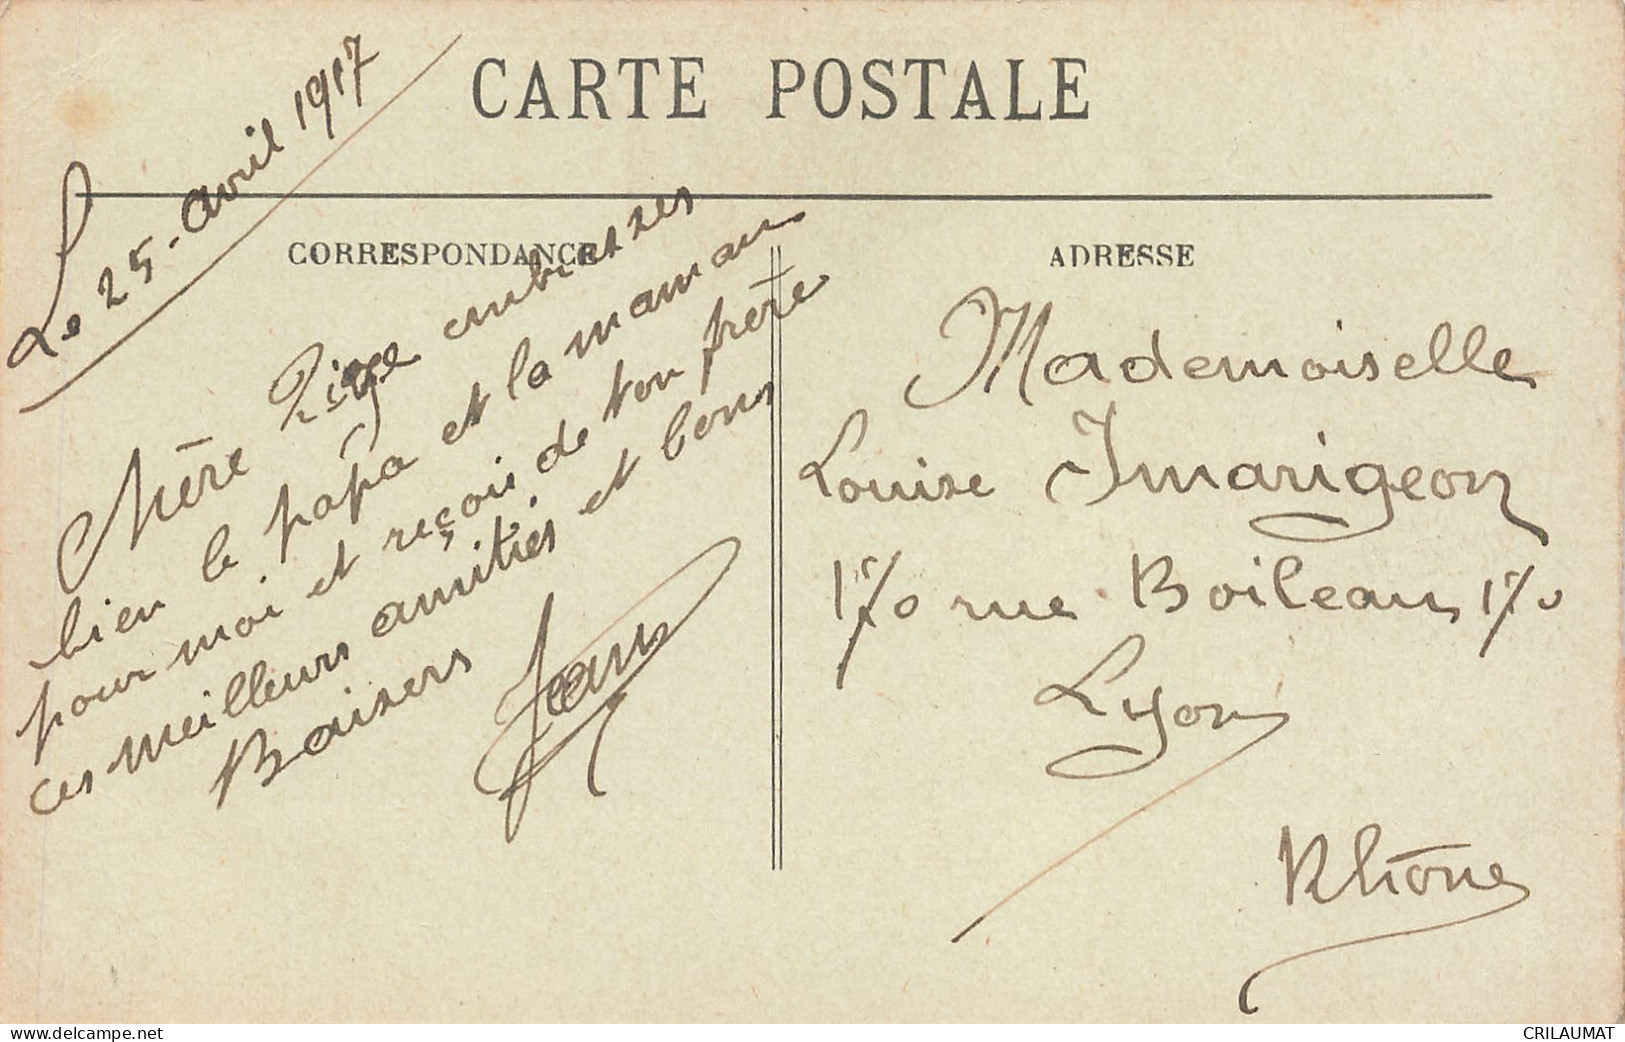 CARTE POSTALE
CORRESPONDANCE
ADRESSE
Le 25 avril 1917
Chère embrasses
bien le papa et la maman
pour moi et reçois de ton frère
ces meilleurs amitiés et bons
Baisers Jean
Mademoiselle
Louise Imarigeon
170 rue Boileau 170
Lyon
Rhône
www.delcampe.net
CRILAUMAT